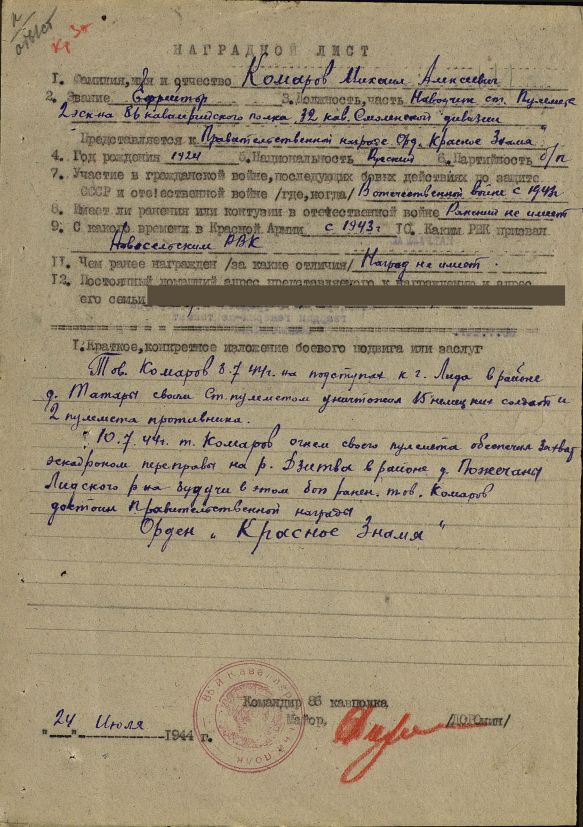 Кр Зн
НАГРАДНОЙ ЛИСТ
1. Фамилия, имя и отчество Комаров Михаил Алексеевич
2. Звание Ефрейтор 3. Должность, часть Наводчик ст. Пулемета
2 эск-на 86 кавалерийского полка 32 кав. Смоленской дивизии
Представляется к Правительственной награде Орд. "Красное Знамя"
4. Год рождения 1924 5. Национальность Русский 6. Партийность б/п
7. Участие в гражданской войне, последующих боевых действиях по защите
СССР и отечественной войне /где, когда/ В отечественной войне с 1943г
8. Имеет ли ранения или контузии в отечественной войне Ранений не имеет
9. С какого времени в Красной Армии с 1943г 10. Каким РВК призван
Новосельским РВК
11. Чем ранее награжден /за какие отличия/ Наград не имеет.
12. Постоянный домашний адрес представляемого к награждению и адрес
его семьи
1. Краткое, конкретное изложение боевого подвига или заслуг
Тов. Комаров 8.7.44г. на подступах к г. Лида в районе
д. Татары своим Ст. пулеметом уничтожил 15 немецких солдат и
2 пулемета противника.
10.7.44г. т. Комаров огнем своего пулемета обеспечил захват
эскадроном переправы на р. Дзитва в районе д. Пожечаны
Лидского р-на будучи в этом бою ранен. тов. Комаров
достоин Правительственной награды
Орден "Красное Знамя"
Командир 86 кавполка
Майор, /ДОРОНИН/
"24" Июля 1944 г.